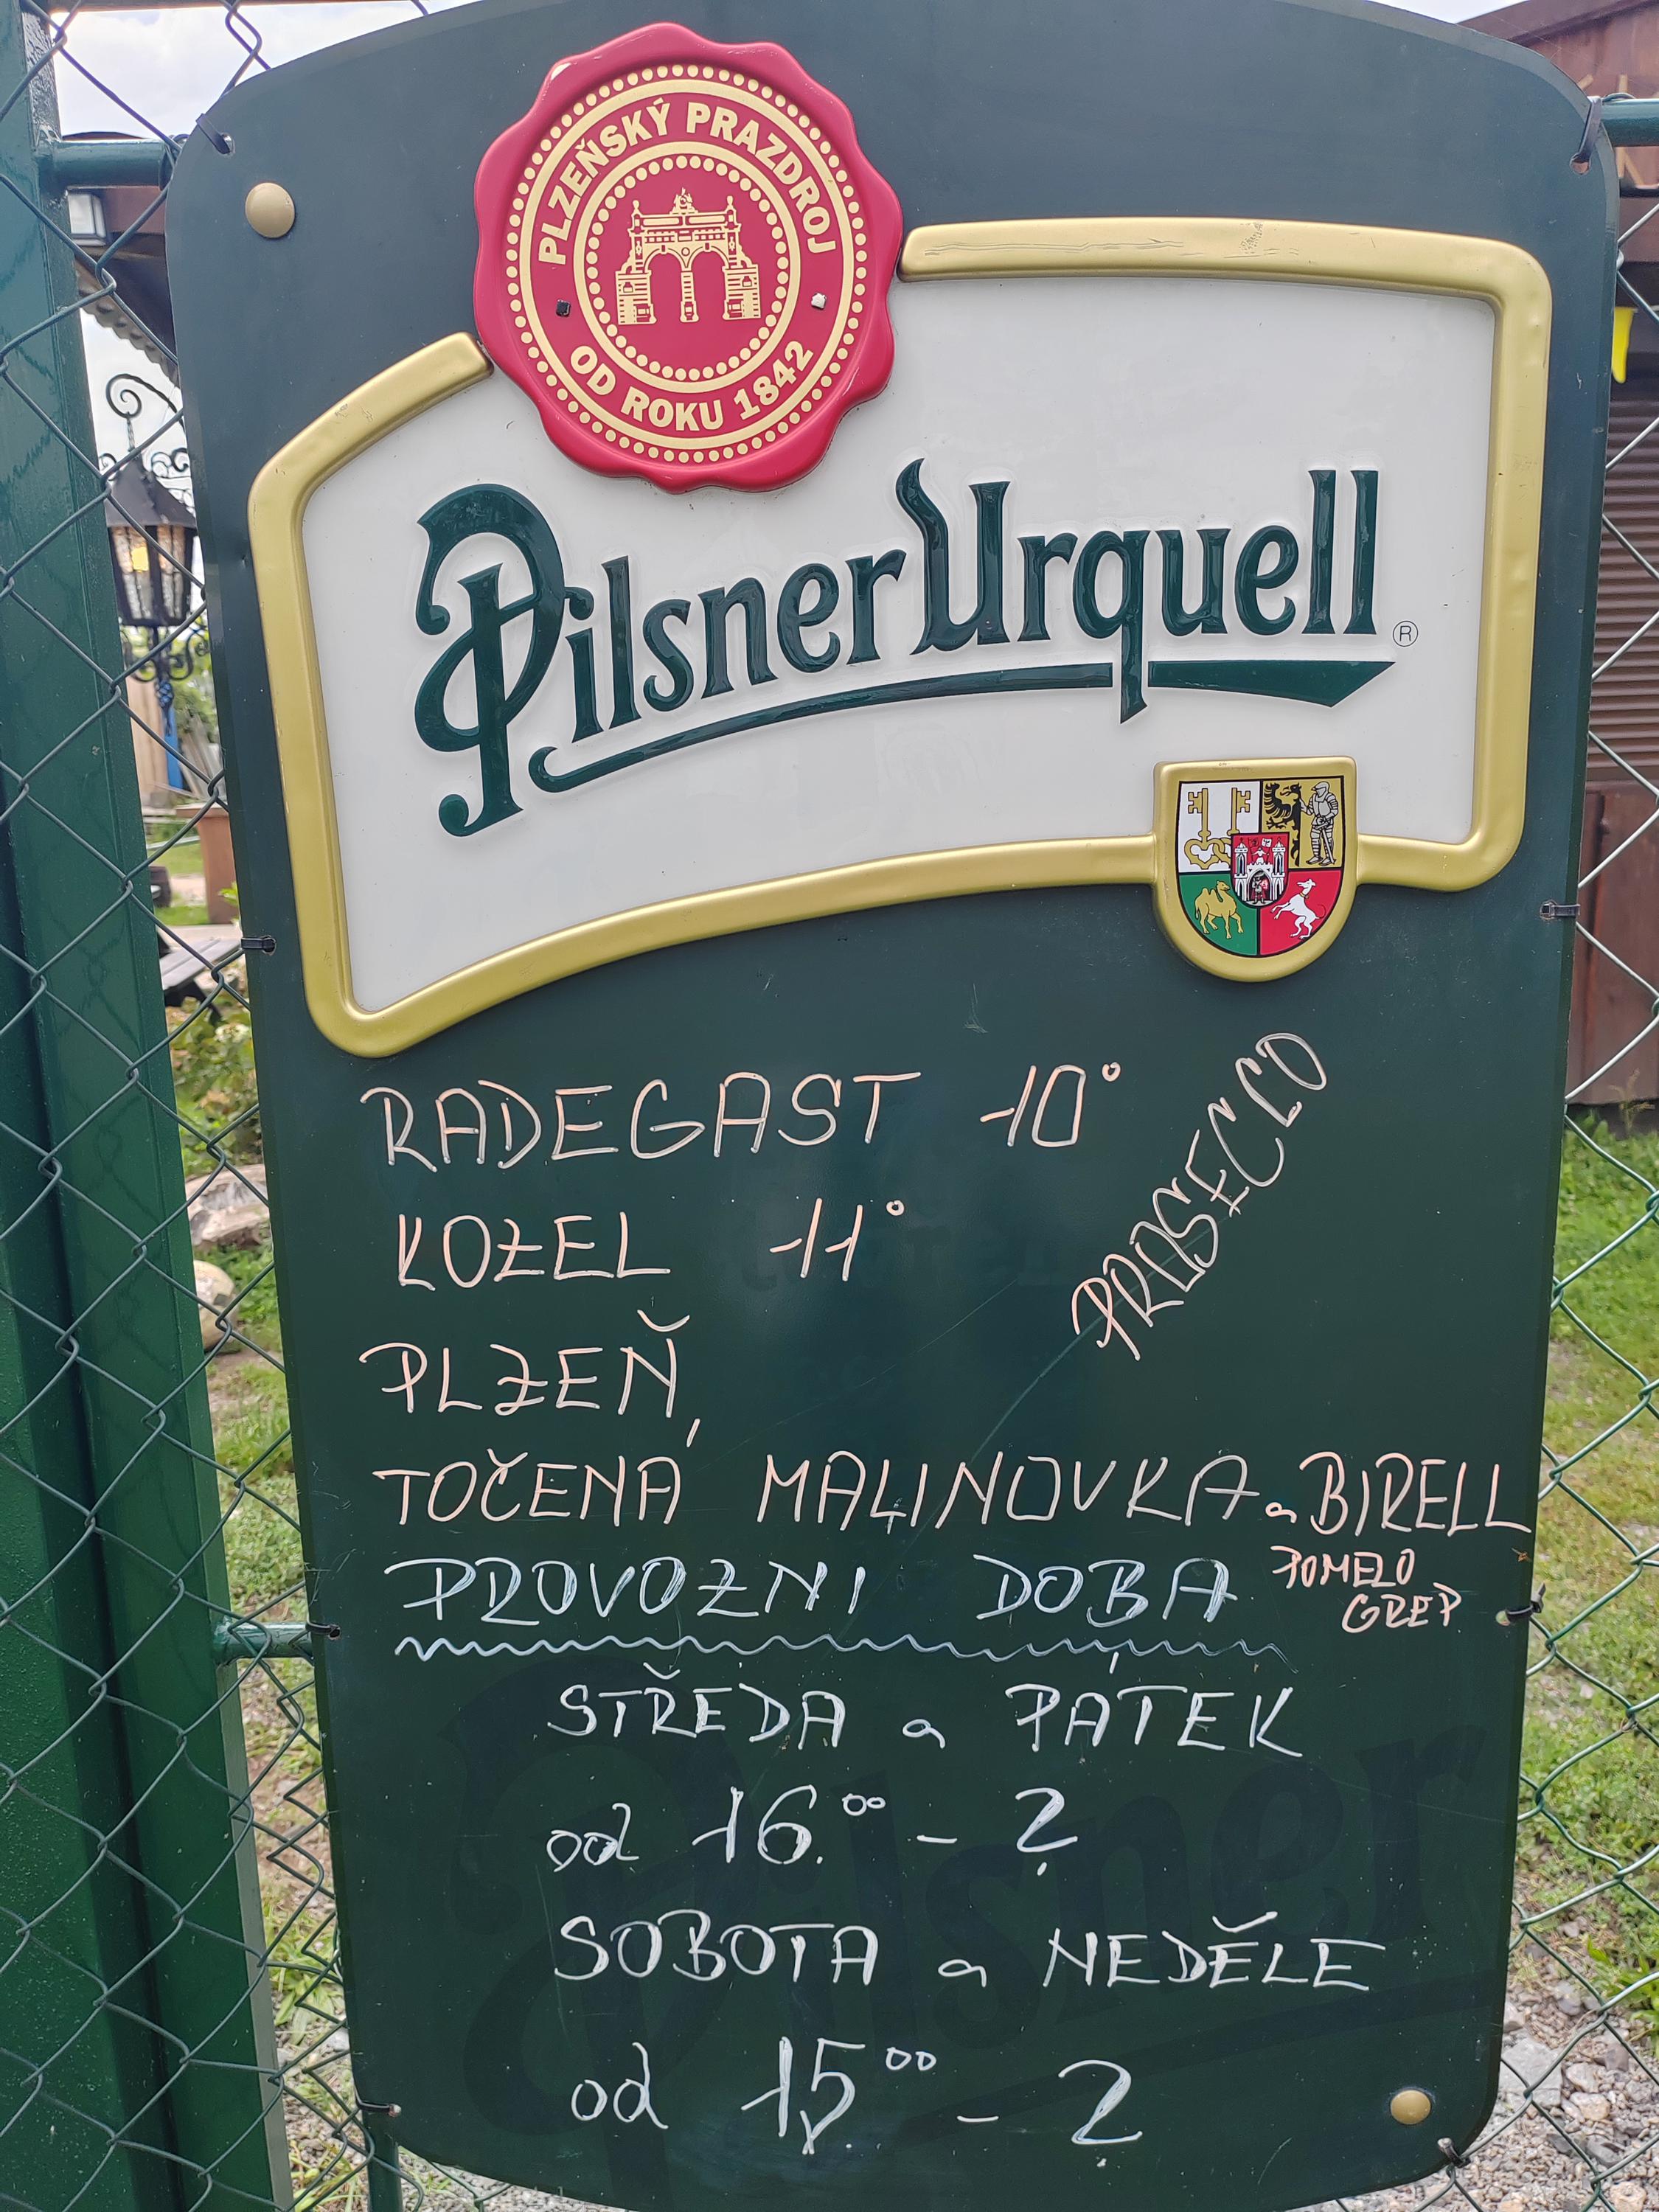 PLZEŇSKÝ PRAZDROJ
OD ROKU 1842
Pilsner Urquell ®
RADEGAST 10°
KOZEL 11°
PROSECCO
PLZEŇ
TOČENÁ MALINOVKA a BIRELL
POMELO
GREP
PROVOZNI DOBA
STŘEDA a PÁTEK
od 16.00 - ?
SOBOTA a NEDĚLE
od 15.00 - ?
Pilsner